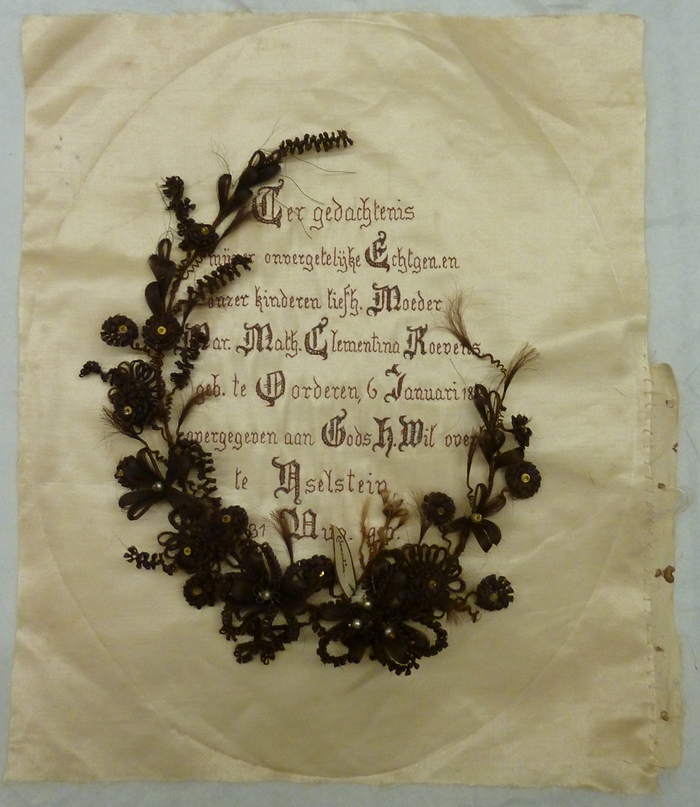 Ter gedachtenis
mijner onvergetelijke Echtgen. en
onzer kinderen liefh. Moeder
Mar. Math. Clementina Roevens
geb. te Oorderen, 6 Januari 18
overgegeven aan Gods H. Wil over
te IJselstein
31 Aug.